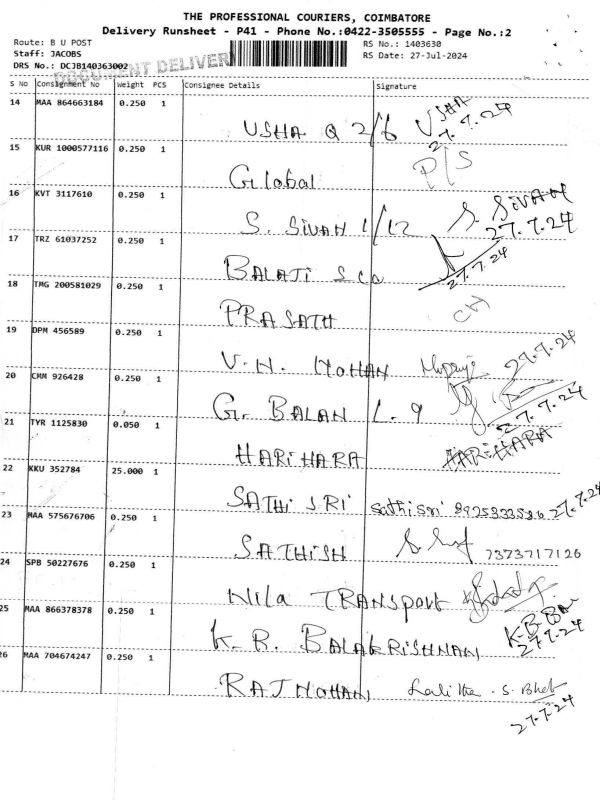 THE PROFESSIONAL COURIERS, COIMBATORE
Delivery Runsheet - P41 - Phone No.:0422-3505555 - Page No.:2
Route: B U POST RS No.: 1403630
Staff: JACOBS RS Date: 27-Jul-2024
DRS No.: DCJB140363002
DOCUMENT DELIVERY
S No Consignment No Weight PCS Consignee Details Signature
14 MAA 864663184 0.250 1
USHA Q 2/6 USHA 27.7.24
15 KUR 1000577116 0.250 1
Global P/S
16 KVT 3117610 0.250 1
S. SIVAN 1/12 S. SIVAN 27.7.24
17 TRZ 61037252 0.250 1
BALAJI S CO 27.7.24
18 TMG 200581029 0.250 1
PRASATH
19 DPM 456589 0.250 1
V.N. MOHAN 27.7.24
20 CMM 926428 0.250 1
G. BALAN L.9 27.7.24
21 TYR 1125830 0.050 1
HARIHARA HARIHARA
22 KKU 352784 25.000 1
SATHI SRI Sathi Sri 27.7.24
23 MAA 575676706 0.250 1
SATHISH 7373717126
24 SPB 50227676 0.250 1
Nila TRANSPORT
25 MAA 866378378 0.250 1
K.R. BALAKRISHNAN K.B. 27.7.24
26 MAA 704674247 0.250 1
RAJMOHAN Lalitha . S. Bhat 27.7.24